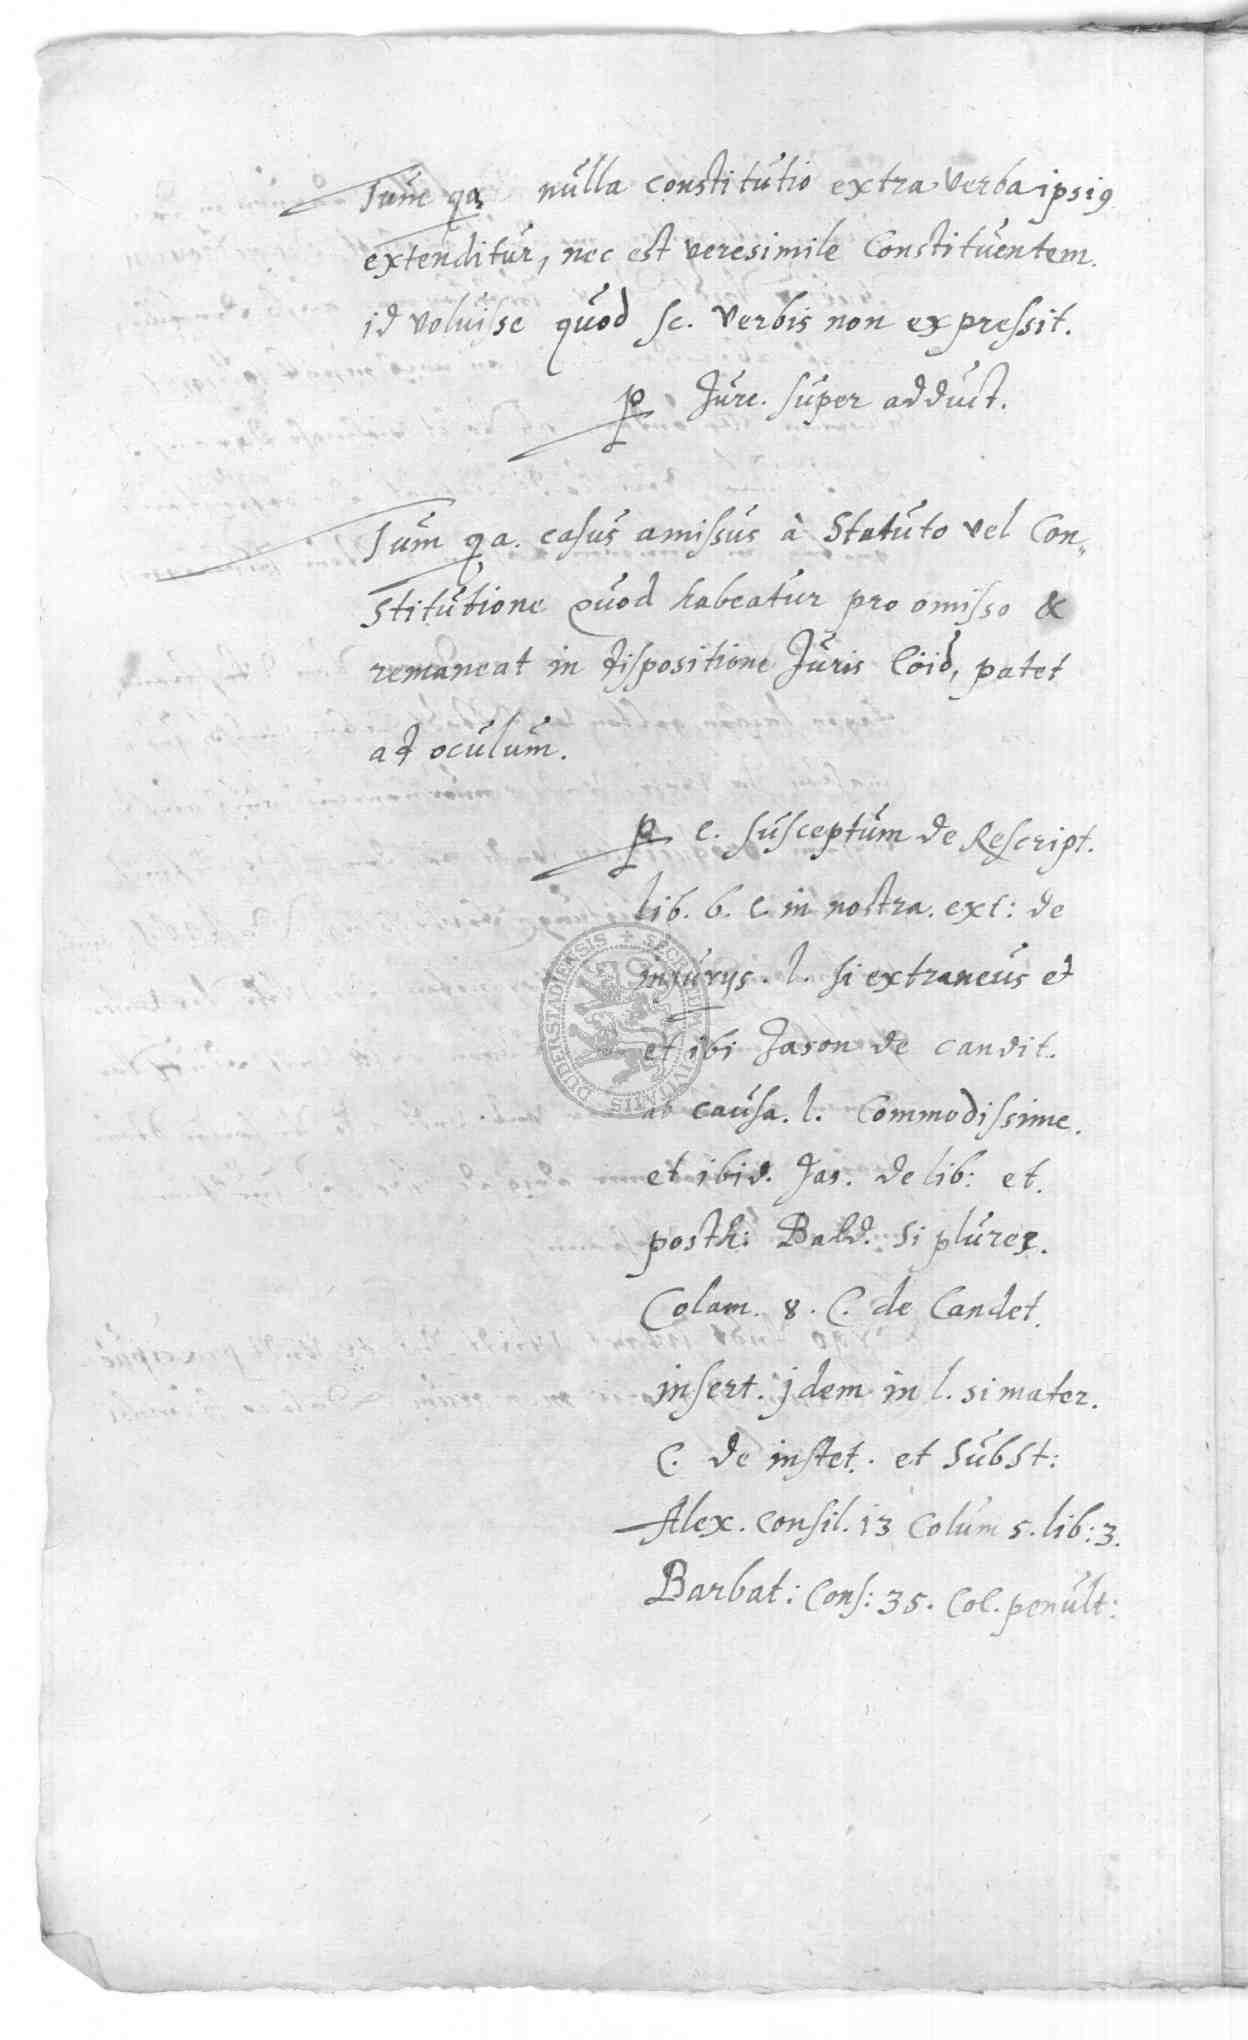 Tum qa nulla constitutio extra verba ipsi9
extenditur, nec est veresimile Constituentem.
id voluisse quod sc. verbis non expressit.
p Jure. super adduct.
Tum qa. casus amissus à Statuto vel Con„
stitutione quod habeatur pro omisso &
remaneat in dispositione Juris Cöid, patet
ad oculum.
p c. susceptum de Rescript.
lib. 6. c. in nostra. ext: de
injurijs. l. si extraneus et
et ibi Jason de candit.
ab causa. l. Commodissime.
et ibid. Jas. de lib: et.
posth: Bald. si plures.
Colam. 8. C. de Candet.
insert. jdem in l. si mater.
C. de instet. et Subst:
Alex. Consil. 13 Colum 5. lib: 3.
Barbat: Cons: 35. Col. penult:
SECRETUM CIVITATIS DUDERSTADIENSIS